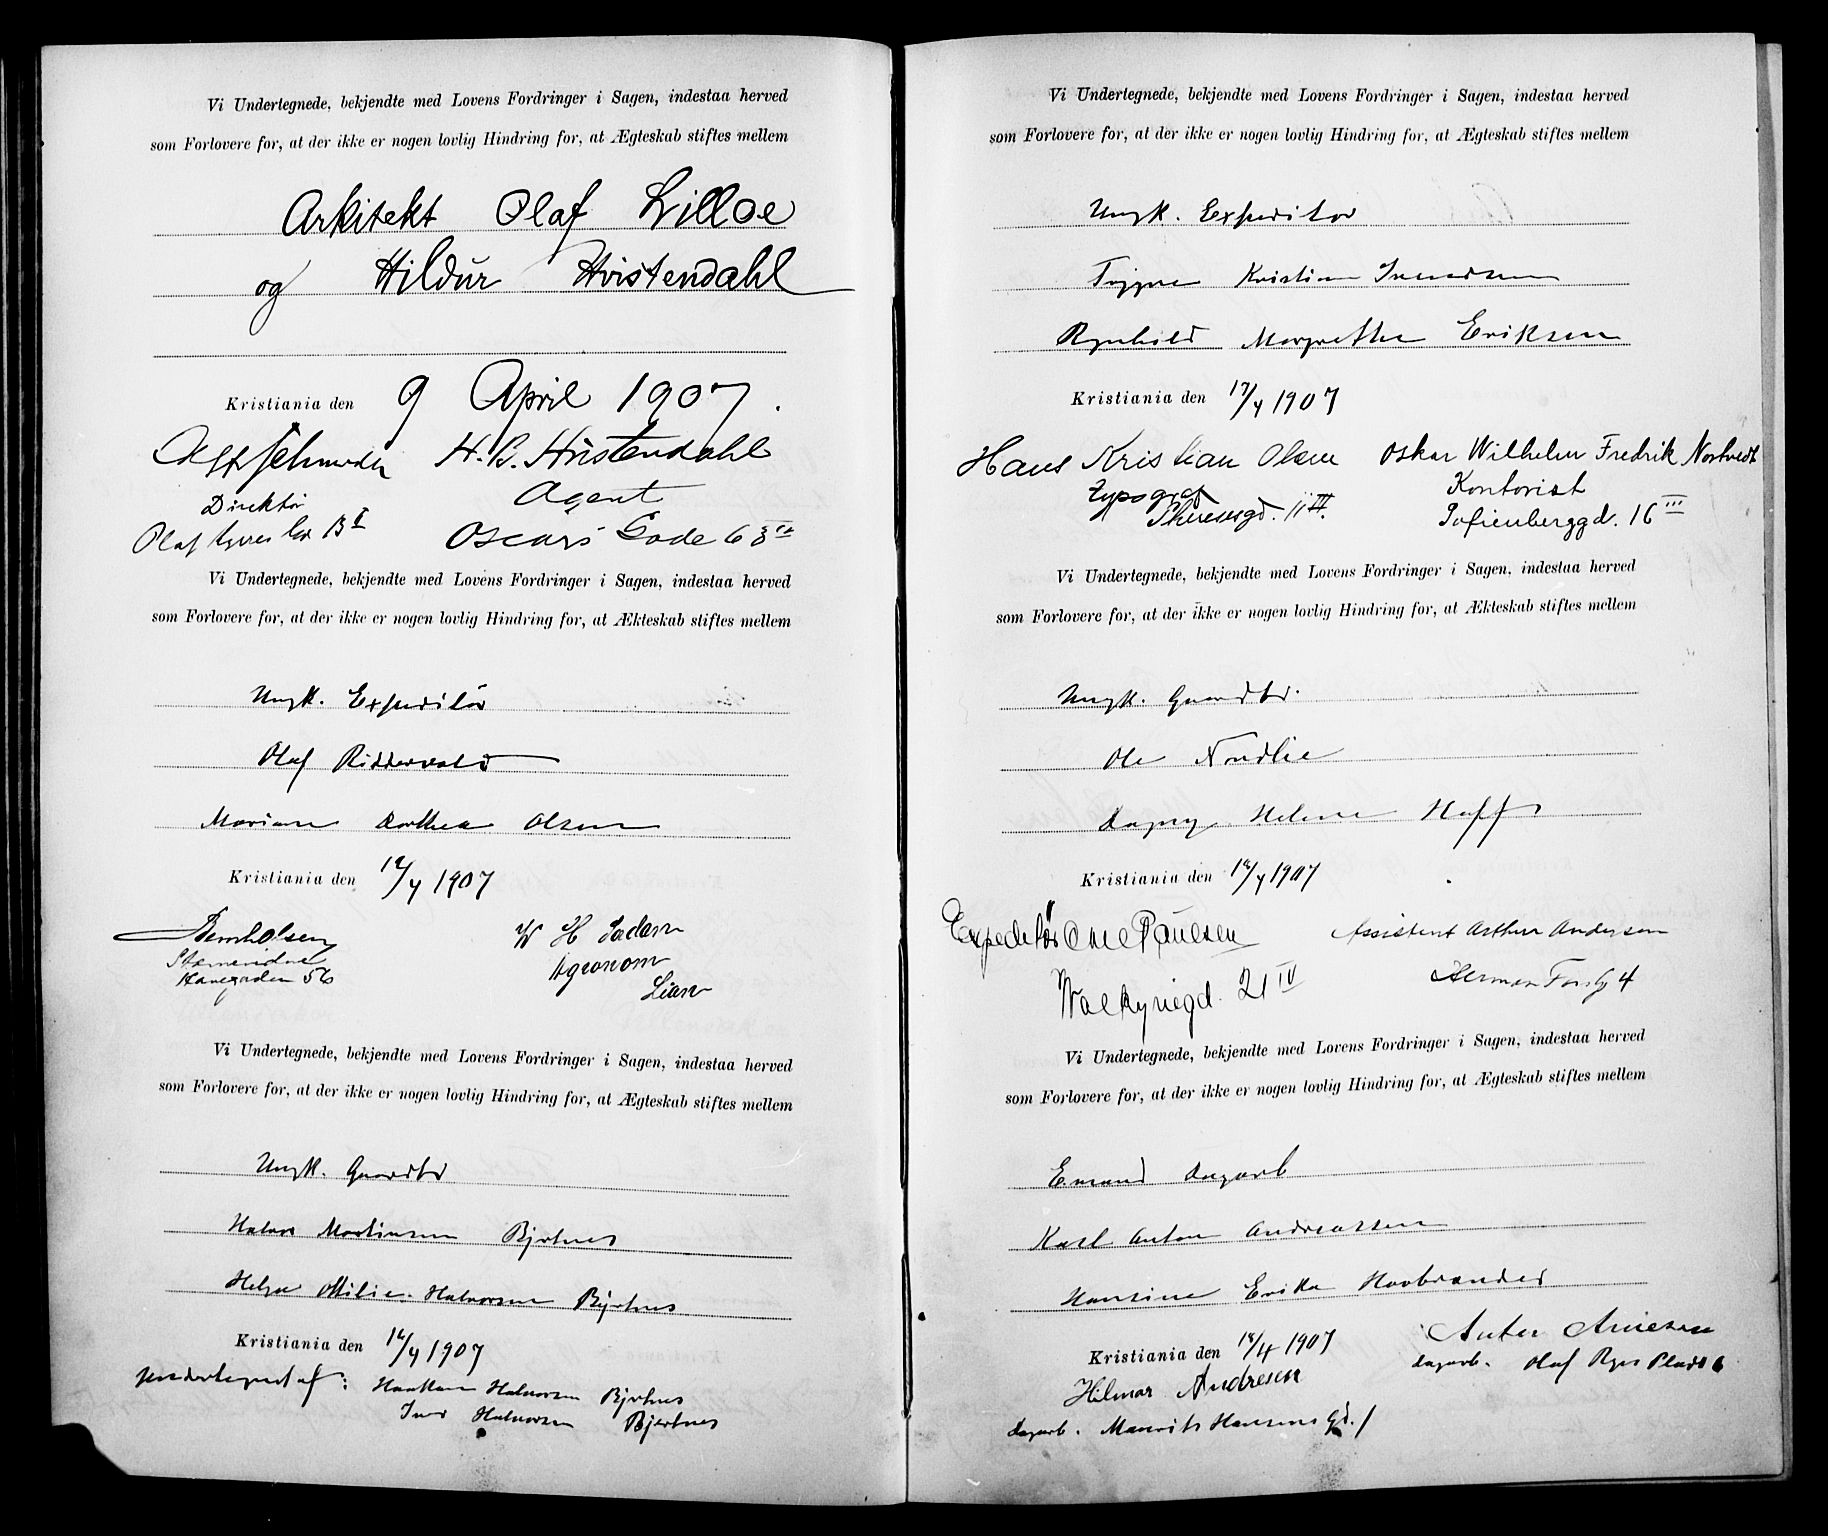 Vi Undertegnede, bekjendte med Lovens Fordringer i Sagen, indestaa herved
som Forlovere for, at der ikke er nogen lovlig Hindring for, at Ægteskab stiftes mellem
Arkitekt Olaf Lilloe
og Hildur Hvistendahl
Kristiania den 9 April 1907.
H. B. Hvistendahl
Direktør
Agent
Oscars Gade 63
Vi Undertegnede, bekjendte med Lovens Fordringer i Sagen, indestaa herved
som Forlovere for, at der ikke er nogen lovlig Hindring for, at Ækteskab stiftes mellem
Ungk. Expeditør
Olaf Riddervold
Mariane Dorthea Olsen
Kristiania den /4 1907
W H
Agronom
Lian
Vi Undertegnede, bekjendte med Lovens Fordringer i Sagen, indestaa herved
som Forlovere for, at der ikke er nogen lovlig Hindring for, at Ægteskab stiftes mellem
Ungk. Gaardbr
Halvor Martinsen Bjertnes
Helga Otilie Halvorsen Bjertnes
Kristiania den 16/4 1907
Undertegnet af: Haakon Halvorsen Bjertnes
Iver Halvorsen Bjertnes
Vi Undertegnede, bekjendte med Lovens Fordringer i Sagen, indestaa herved
som Forlovere for, at der ikke er nogen lovlig Hindring for, at Ægteskab stiftes mellem
Ungk. Expeditør
Trygve Kristian Svendsen
Ragnhild Margrethe Eriksen
Kristiania den 17/4 1907
Hans Kristian Olsen
Oskar Wilhelm Fredrik Nortvedt
Typograf
Kontorist
Theresesgd. 11
Sofienberggd. 16 III
Vi Undertegnede, bekjendte med Lovens Fordringer i Sagen, indestaa herved
som Forlovere for, at der ikke er nogen lovlig Hindring for, at Ækteskab stiftes mellem
Ungk. Gaardbr.
Ole Nordlie
Dagny Helene Hoff
Kristiania den 18/4 1907
Expeditør Paulsen
Assistent Arthur Andersen
Walkyriegd. 21 IV
Herman Foss g 4
Vi Undertegnede, bekjendte med Lovens Fordringer i Sagen, indestaa herved
som Forlovere for, at der ikke er nogen lovlig Hindring for, at Ægteskab stiftes mellem
Enkemand Dagarb
Karl Anton Andreassen
Hansine Erika Haabrandsd
Kristiania den 18/4 1907
Hilmar Andresen
Dagarb. Olaf Ryes Plads 6
Dagarb. Maurits Hansens Gd. 1